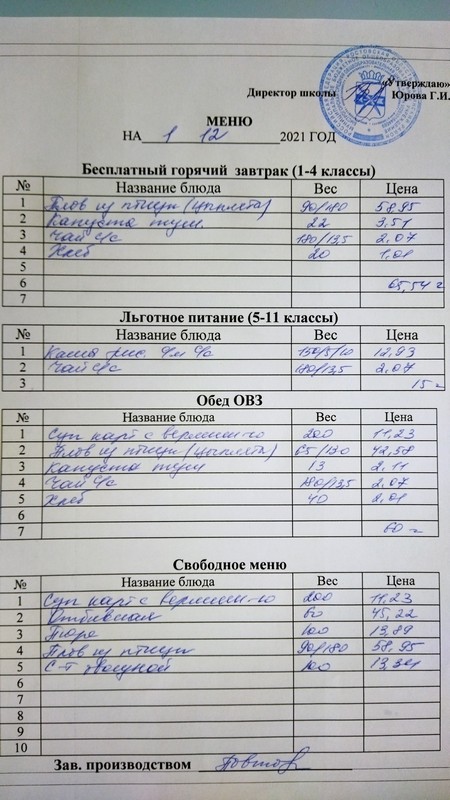 «Утверждаю»
Директор школы Юрова Г.И.
МЕНЮ
НА 1 12 2021 ГОД
Бесплатный горячий завтрак (1-4 классы)
№ Название блюда Вес Цена
1 Плов из птицы (цыплята) 90/180 58,95
2 Капуста туш. 22 3,51
3 Чай с/с 180/13,5 2,07
4 Хлеб 20 1,01
5
6 65,54
7
Льготное питание (5-11 классы)
№ Название блюда Вес Цена
1 Каша рис. с/м с/с 150/5/10 12,93
2 Чай с/с 180/13,5 2,07
3 15
Обед ОВЗ
№ Название блюда Вес Цена
1 Суп карт с вермиш-ю 200 11,23
2 Плов из птицы (цыплята) 65/130 42,58
3 Капуста туш 13 2,11
4 Чай с/с 180/13,5 2,07
5 Хлеб 40 2,01
6
7 60
Свободное меню
№ Название блюда Вес Цена
1 Суп карт с вермиш-ю 200 11,23
2 Отбивная 60 45,22
3 Пюре 100 13,89
4 Плов из птицы 90/180 58,95
5 С-т 100 13,34
6
7
8
9
10
Зав. производством